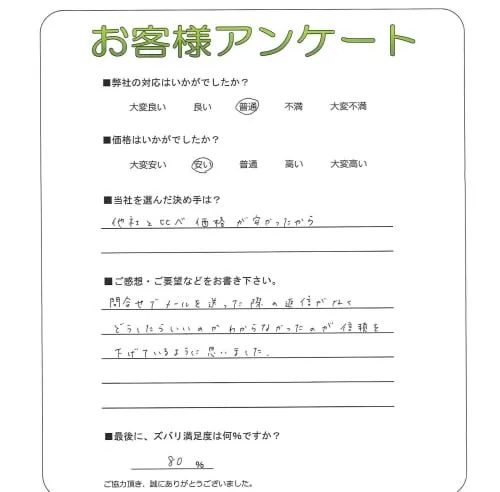 お客様アンケート
■弊社の対応はいかがでしたか？
大変良い 良い 普通 不満 大変不満
■価格はいかがでしたか？
大変安い 安い 普通 高い 大変高い
■当社を選んだ決め手は？
他社と比べ価格が安かったから
■ご感想・ご要望などをお書き下さい。
問合せでメールを送った際の返信がなく
どうしたらいいのかわからなかったのが信頼を
下げているように思いました。
■最後に、ズバリ満足度は何％ですか？
80 ％
ご協力頂き、誠にありがとうございました。